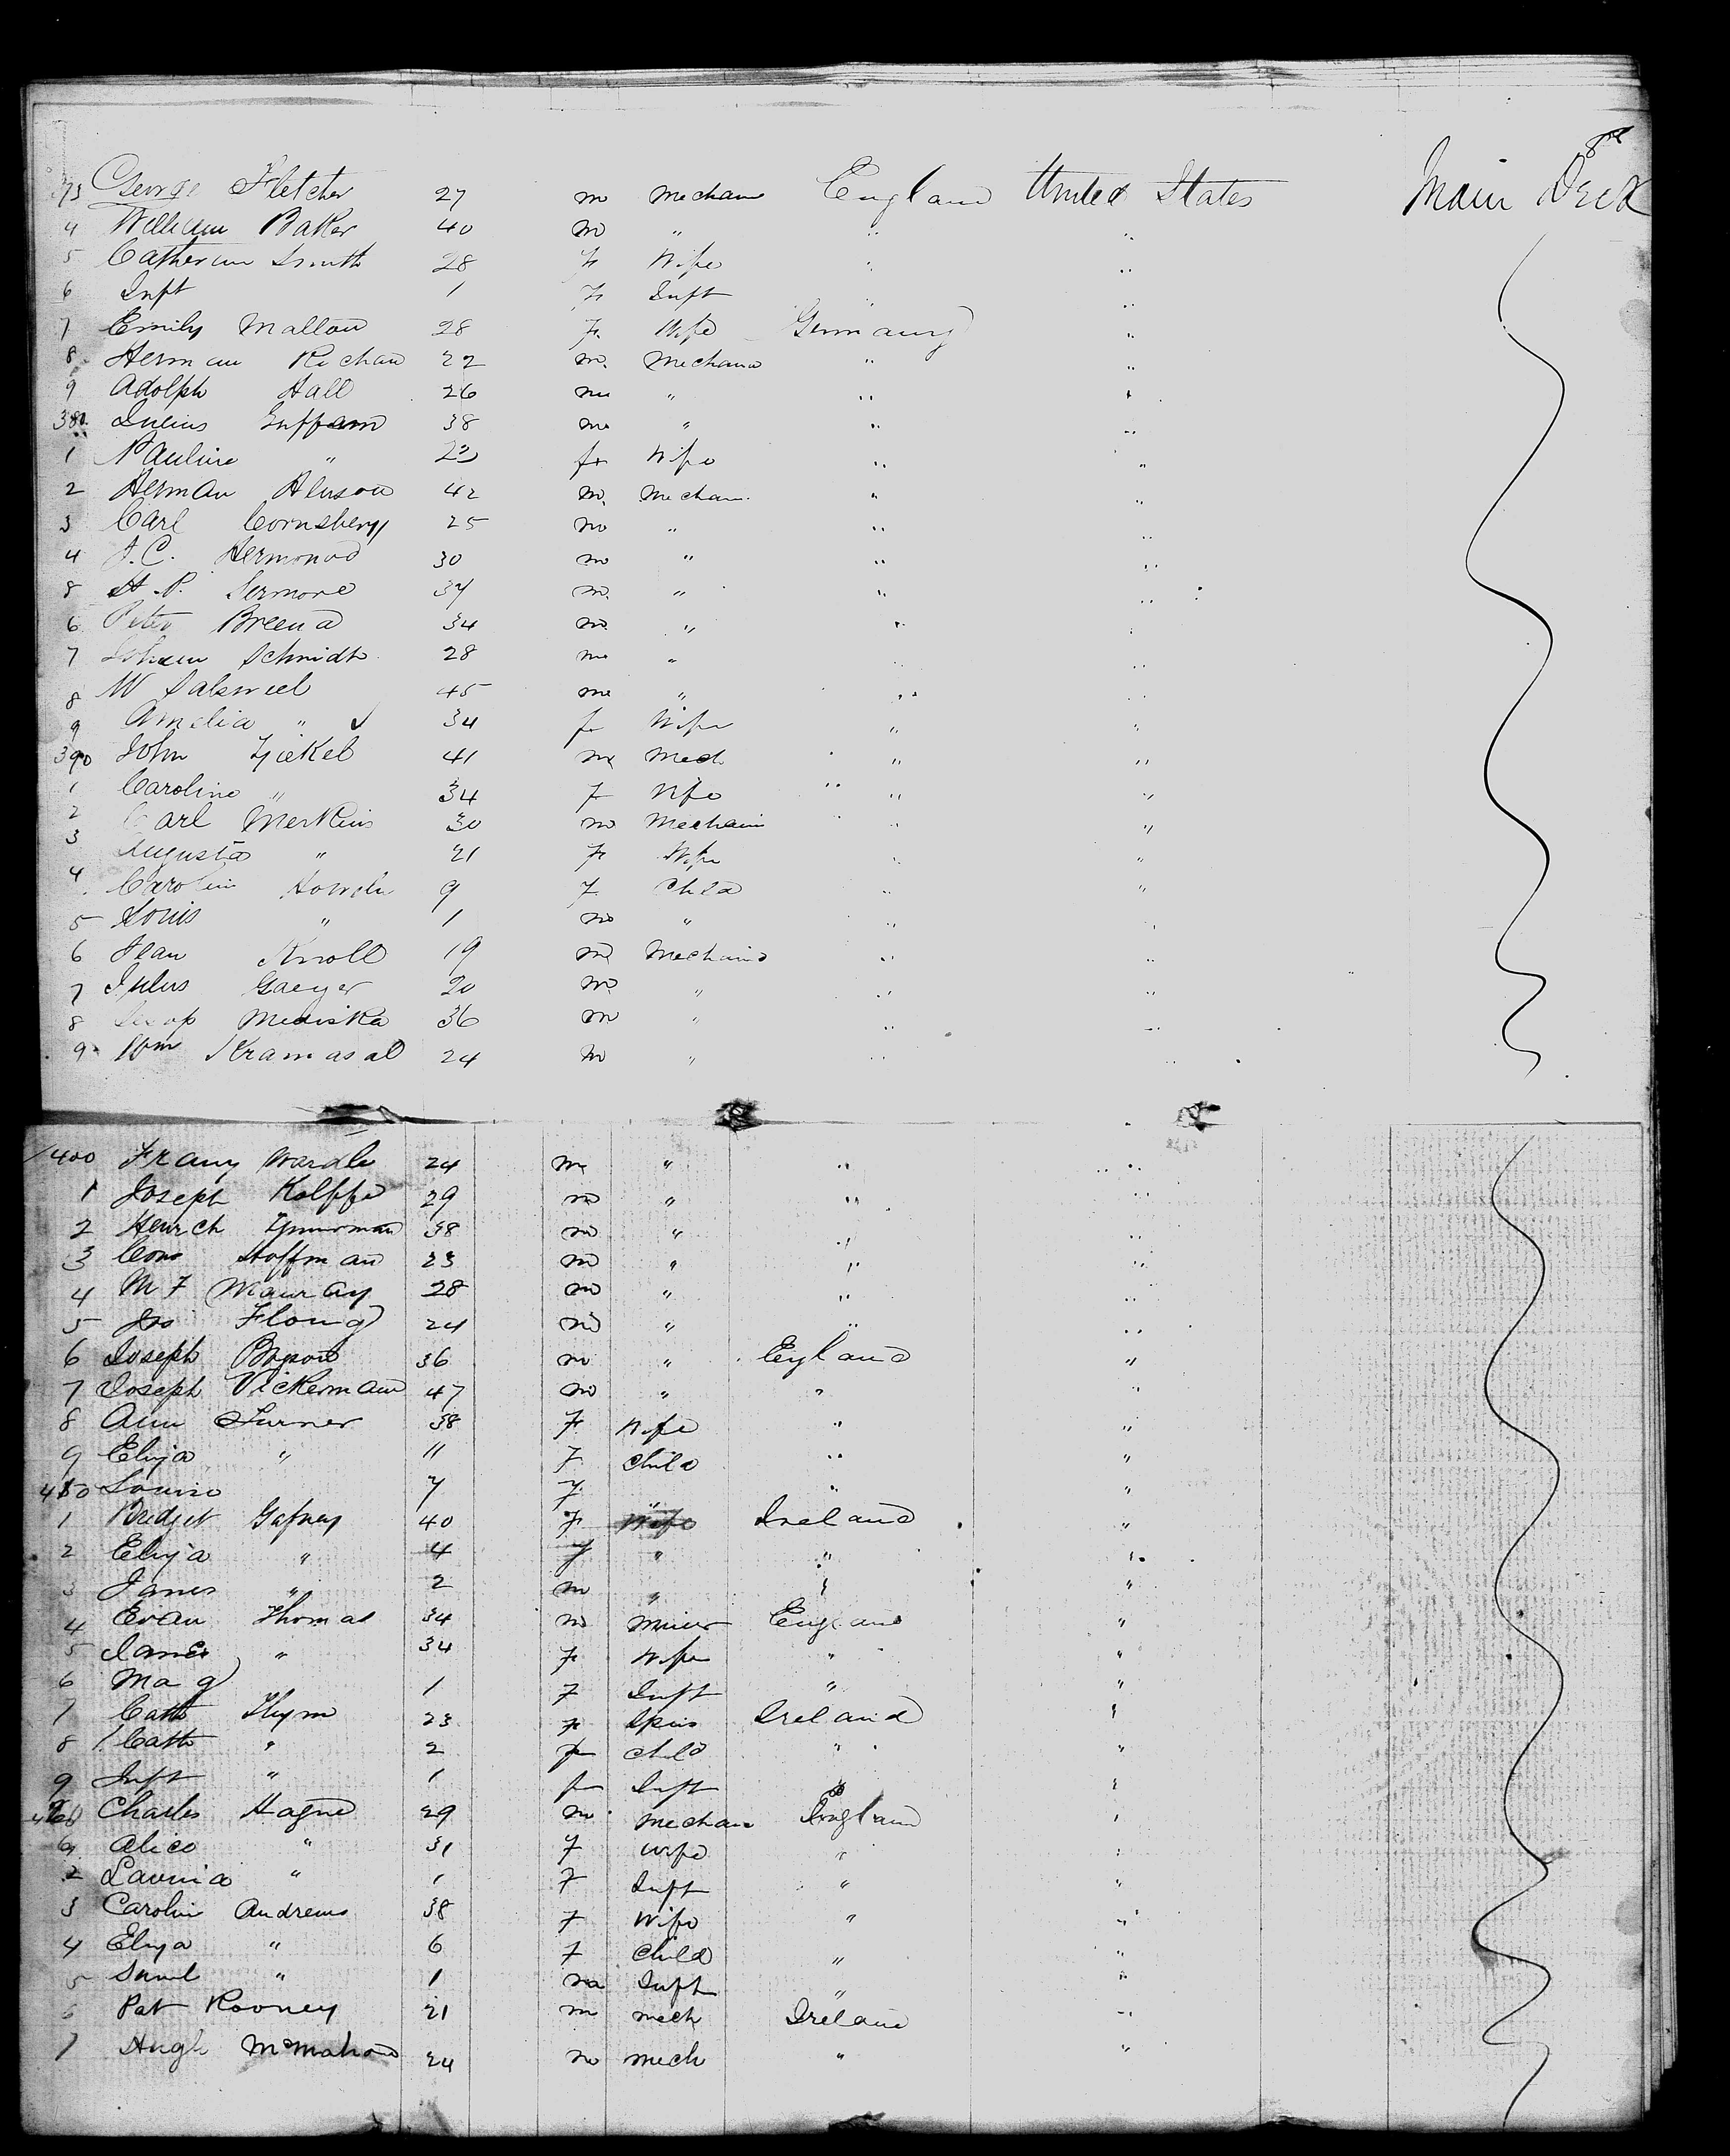 373 George Fletcher 27 m Mechan England United States Main Deck
4 William Baker 40 m " " "
5 Catherin Smith 28 f Wife " "
6 Inft 1 f Inft " "
7 Emily Mallon 28 f. Wife Germany "
8 Herman Richau 22 m. Mechanic " "
9 Adolph Hall 26 m " " "
380 Julius 38 m " " "
1 Pauline " 23 f Wife " "
2 Herman Henson 42 m. Mechan. " "
3 Carl Cornsberg 25 m " " "
4 J.C. Hermond 30 m " " "
8 H.P. Sermone 34 m. " " "
6 Peter Breena 34 m. " " "
7 Johann Schmidt 28 m " " "
8 W 45 m " " "
9 Amelia " 34 f Wife " "
390 John 41 m Mech. " "
1 Caroline " 34 f Wife " "
2 Carl Merkins 30 m Mechani " "
3 Augusta " 21 f Wife " "
4 Carolin 9 f Child " "
5 Louis " 1 m " " "
6 Jean Knoll 19 m Mechanic " "
7 Julus Gaeger 20 m " " "
8 Mediska 36 m " " "
9 Wm Kramasal 24 m " " "
400 Frany Wardle 24 m " " "
1 Joseph Kolffe 29 m " " "
2 Henrch 38 m " " "
3 Hoffman 23 m " " "
4 M F 28 m " " "
5 24 m " " "
6 Joseph 36 m " England "
7 Joseph Vickerman 47 m " " "
8 Ann Turner 38 f Wife " "
9 Eliza " 11 f Child " "
410 Louise 7 f " " "
1 Bridget Gafney 40 f Wife Ireland "
2 Eliza " 4 f " " "
3 James " 2 m " " "
4 Evan Thomas 34 m Miner England "
5 " 34 f Wife " "
6 1 f Inft " "
7 Cath 23 f Spins Ireland "
8 Cath " 2 f Child " "
9 Inft " 1 f Inft " "
Charles Hague 29 m Mechan England "
Alice " 31 f Wife " "
2 Lavinia " 1 f Inft " "
3 Carolin Andrews 38 f Wife " "
4 Eliza " 6 f Child " "
5 Saml " 1 m Inft " "
6 Pat Rooney 21 m mech Ireland "
7 Hugh McMahon 24 m mech " "